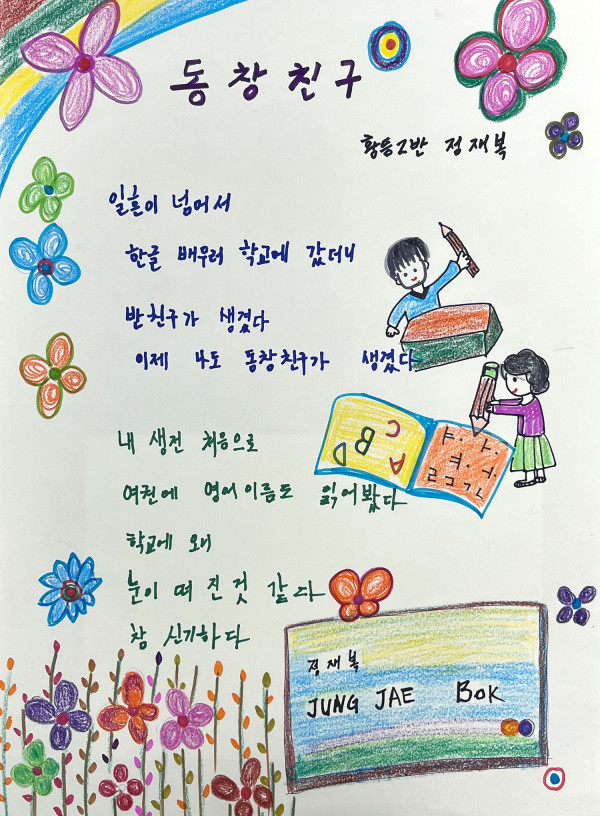 동창친구
황등2반 정재복
일흔이 넘어서
한글 배우러 학교에 갔더니
반친구가 생겼다
이제 나도 동창친구가 생겼다
내 생전 처음으로
여권에 영어이름도 읽어봤다
학교에 와
눈이 떠 진것 같다
참 신기하다
A B C D
야 . 가
여 . 거
ㄹ ㄷ ㄴ ㄱ
정재복
JUNG JAE BOK